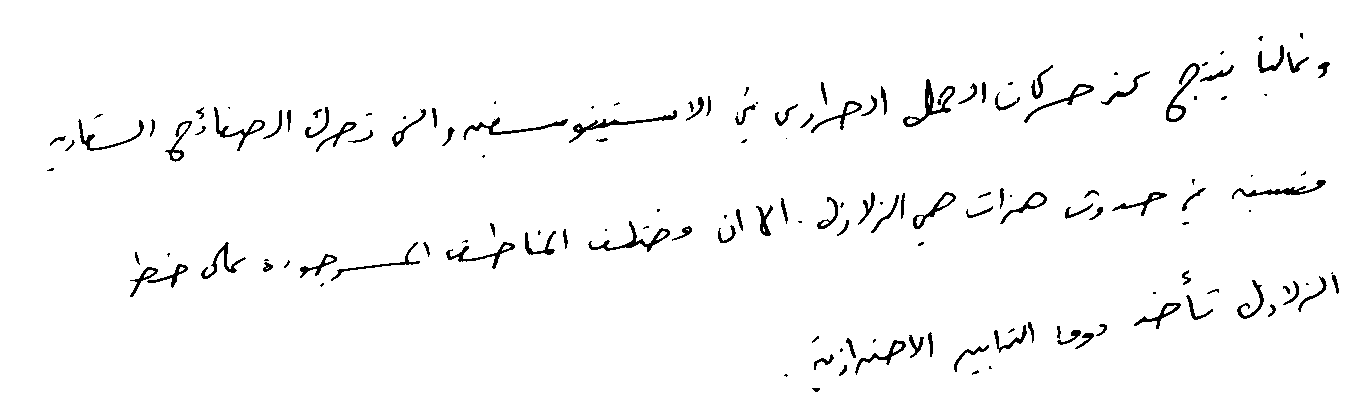 وغالباً ينتج عن حركات الحمل الحراري في الاستينوسفير والتي تحرك الصفائح القارية
متسببه في حدوث هزات هي الزلازل. الا ان مختلف المناطق الموجودة على خط
الزلازل تأخذ دوما التدابير الاحترازية.